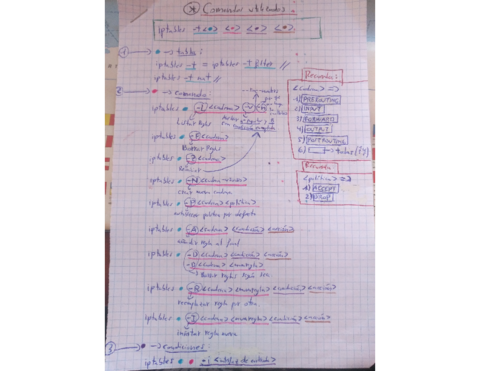 * Comandos utilizados
iptables -t <•> <•> <•> <•>
1 → tabla:
iptables -t = iptables -t filter //
iptables -t nat //
2 → comandos:
iptables -L <cadena> -v -n
Listar regla
iptables -F <cadena>
Borrar regla
iptables -Z <cadena>
Reiniciar
iptables -N <cadena>
crear nueva cadena
iptables -P <cadena> <política>
política por defecto
iptables -A <cadena> <condición> <acción>
añadir regla al final
iptables -D <cadena> <condición> <acción>
-D <cadena> <numregla>
Borrar regla
iptables -R <cadena> <numregla> <condición> <acción>
reemplazar regla por otra
iptables -I <cadena> <numregla> <condición> <acción>
insertar regla nueva
3 → condiciones:
iptables -i <interfaz de entrada>
Recuerda:
<cadena> =>
1) PREROUTING
2) INPUT
3) FORWARD
4) OUTPUT
5) POSTROUTING
6)
Recuerda
<política> =>
1) ACCEPT
2) DROP